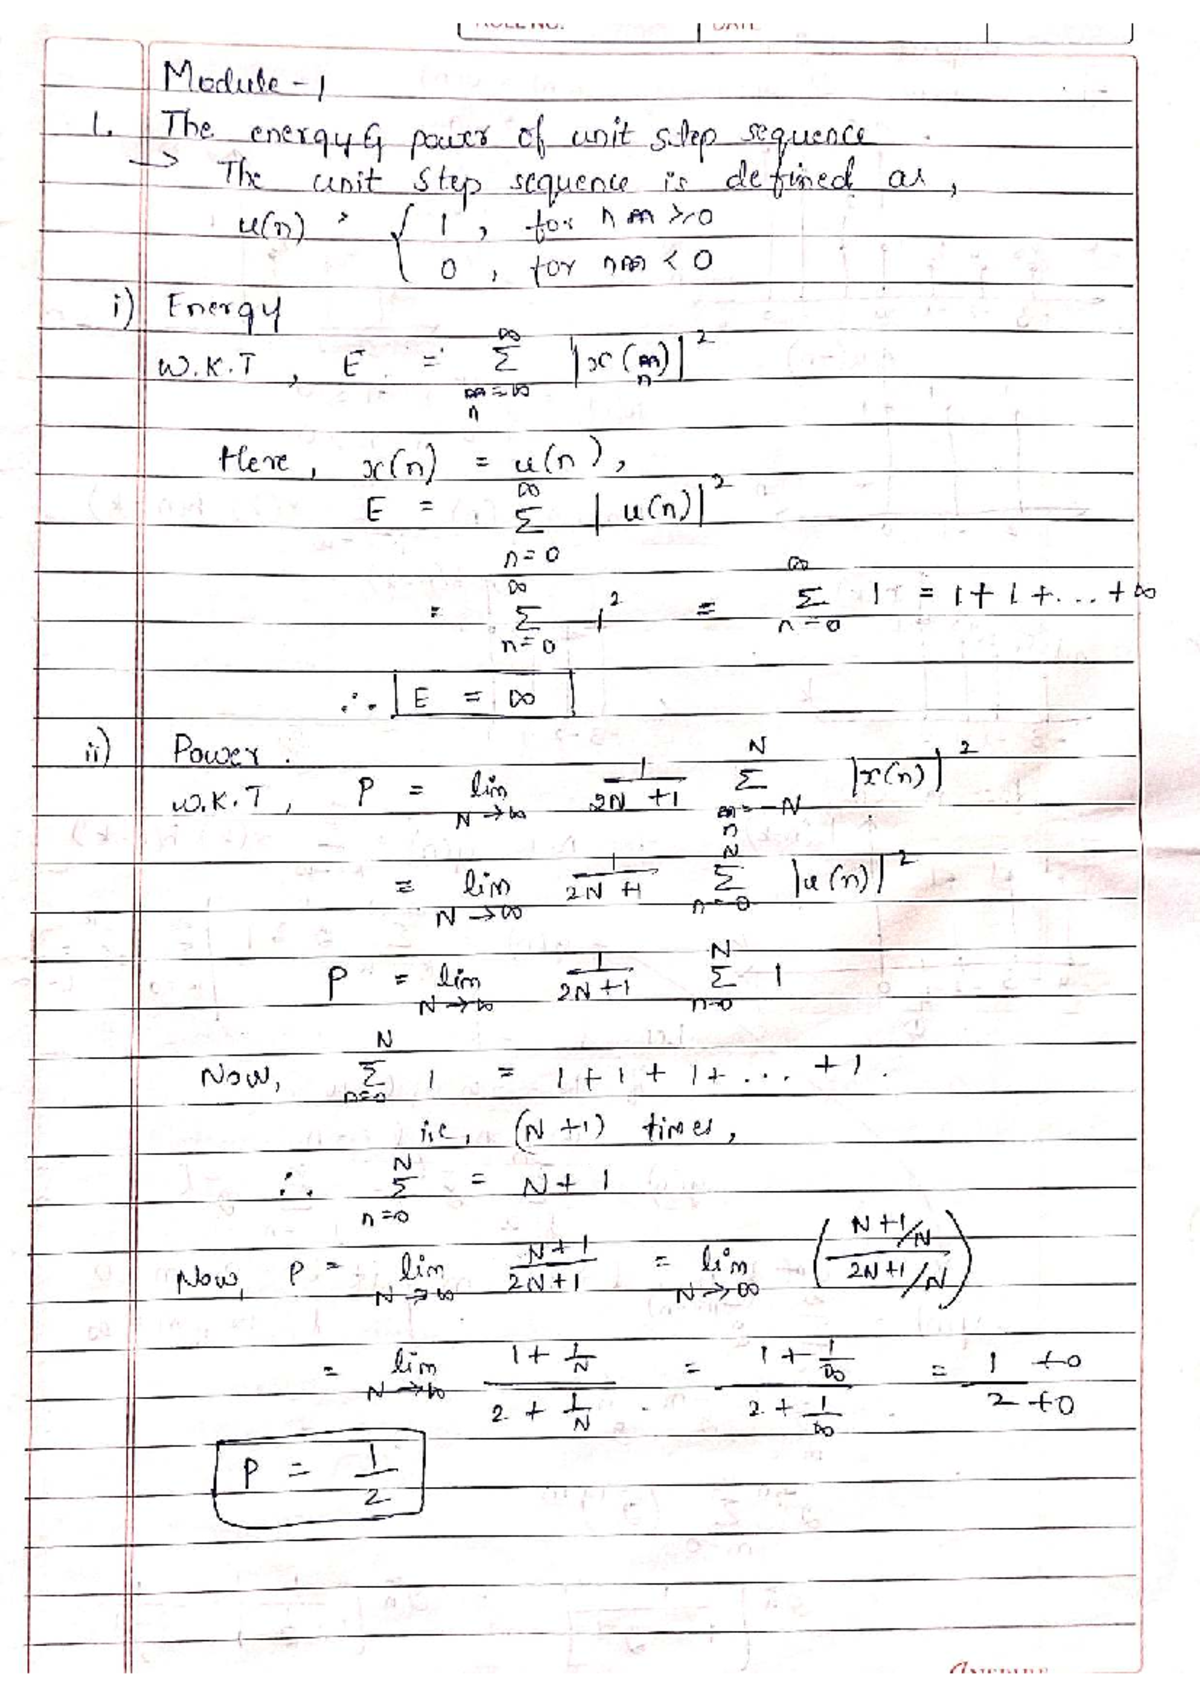 ROLL NO. DATE
Module - 1
1. The energy & power of unit step sequence
→ The unit step sequence is defined as,
u(n) = { 1 , for n ≥ 0
0 , for n < 0
i) Energy
W.K.T , E = ∞ Σ n=∞ |x(n)|²
Here, x(n) = u(n),
E = ∞ Σ n=0 |u(n)|²
= ∞ Σ n=0 1² = ∞ Σ n=0 1 = 1+1+...+∞
∴ E = ∞
ii) Power.
W.K.T, P = lim N→∞ 1/(2N+1) N Σ n=-N |x(n)|²
= lim N→∞ 1/(2N+1) N Σ n=0 |u(n)|²
P = lim N→∞ 1/(2N+1) N Σ n=0 1
Now, N Σ n=0 1 = 1+1+1+...+1.
i.e, (N+1) times,
∴ N Σ n=0 = N+1
Now, P = lim N→∞ N+1/2N+1 = lim N→∞ (N+1/N / 2N+1/N)
= lim N→∞ (1+1/N)/(2+1/N) = (1+1/∞)/(2+1/∞) = (1+0)/(2+0)
P = 1/2